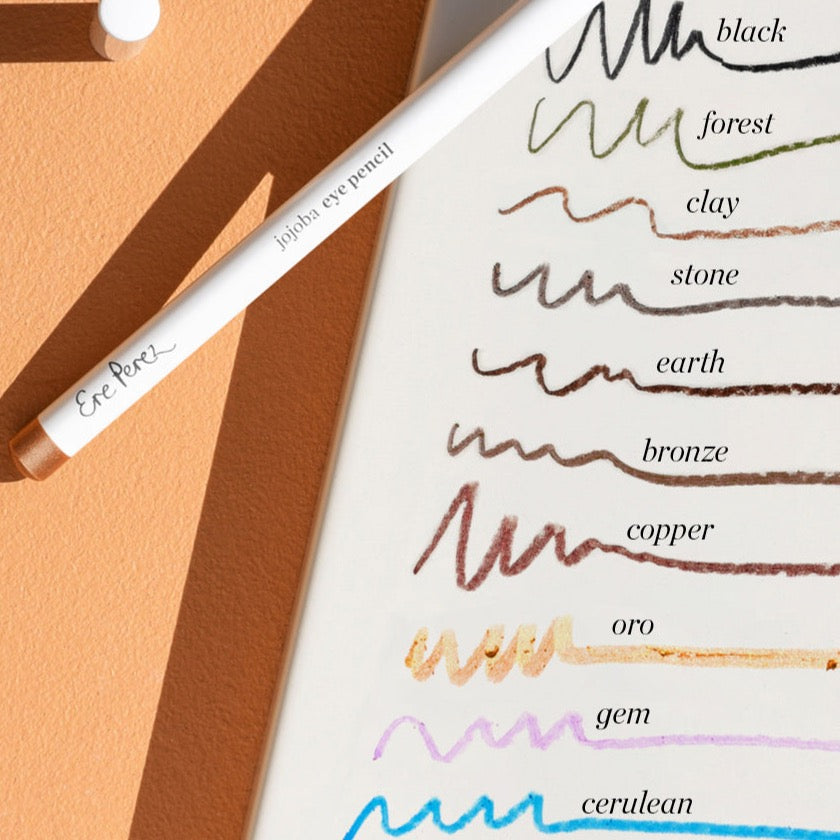 black
forest
clay
jojoba eye pencil
stone
Ere Perez
earth
bronze
copper
oro
gem
cerulean